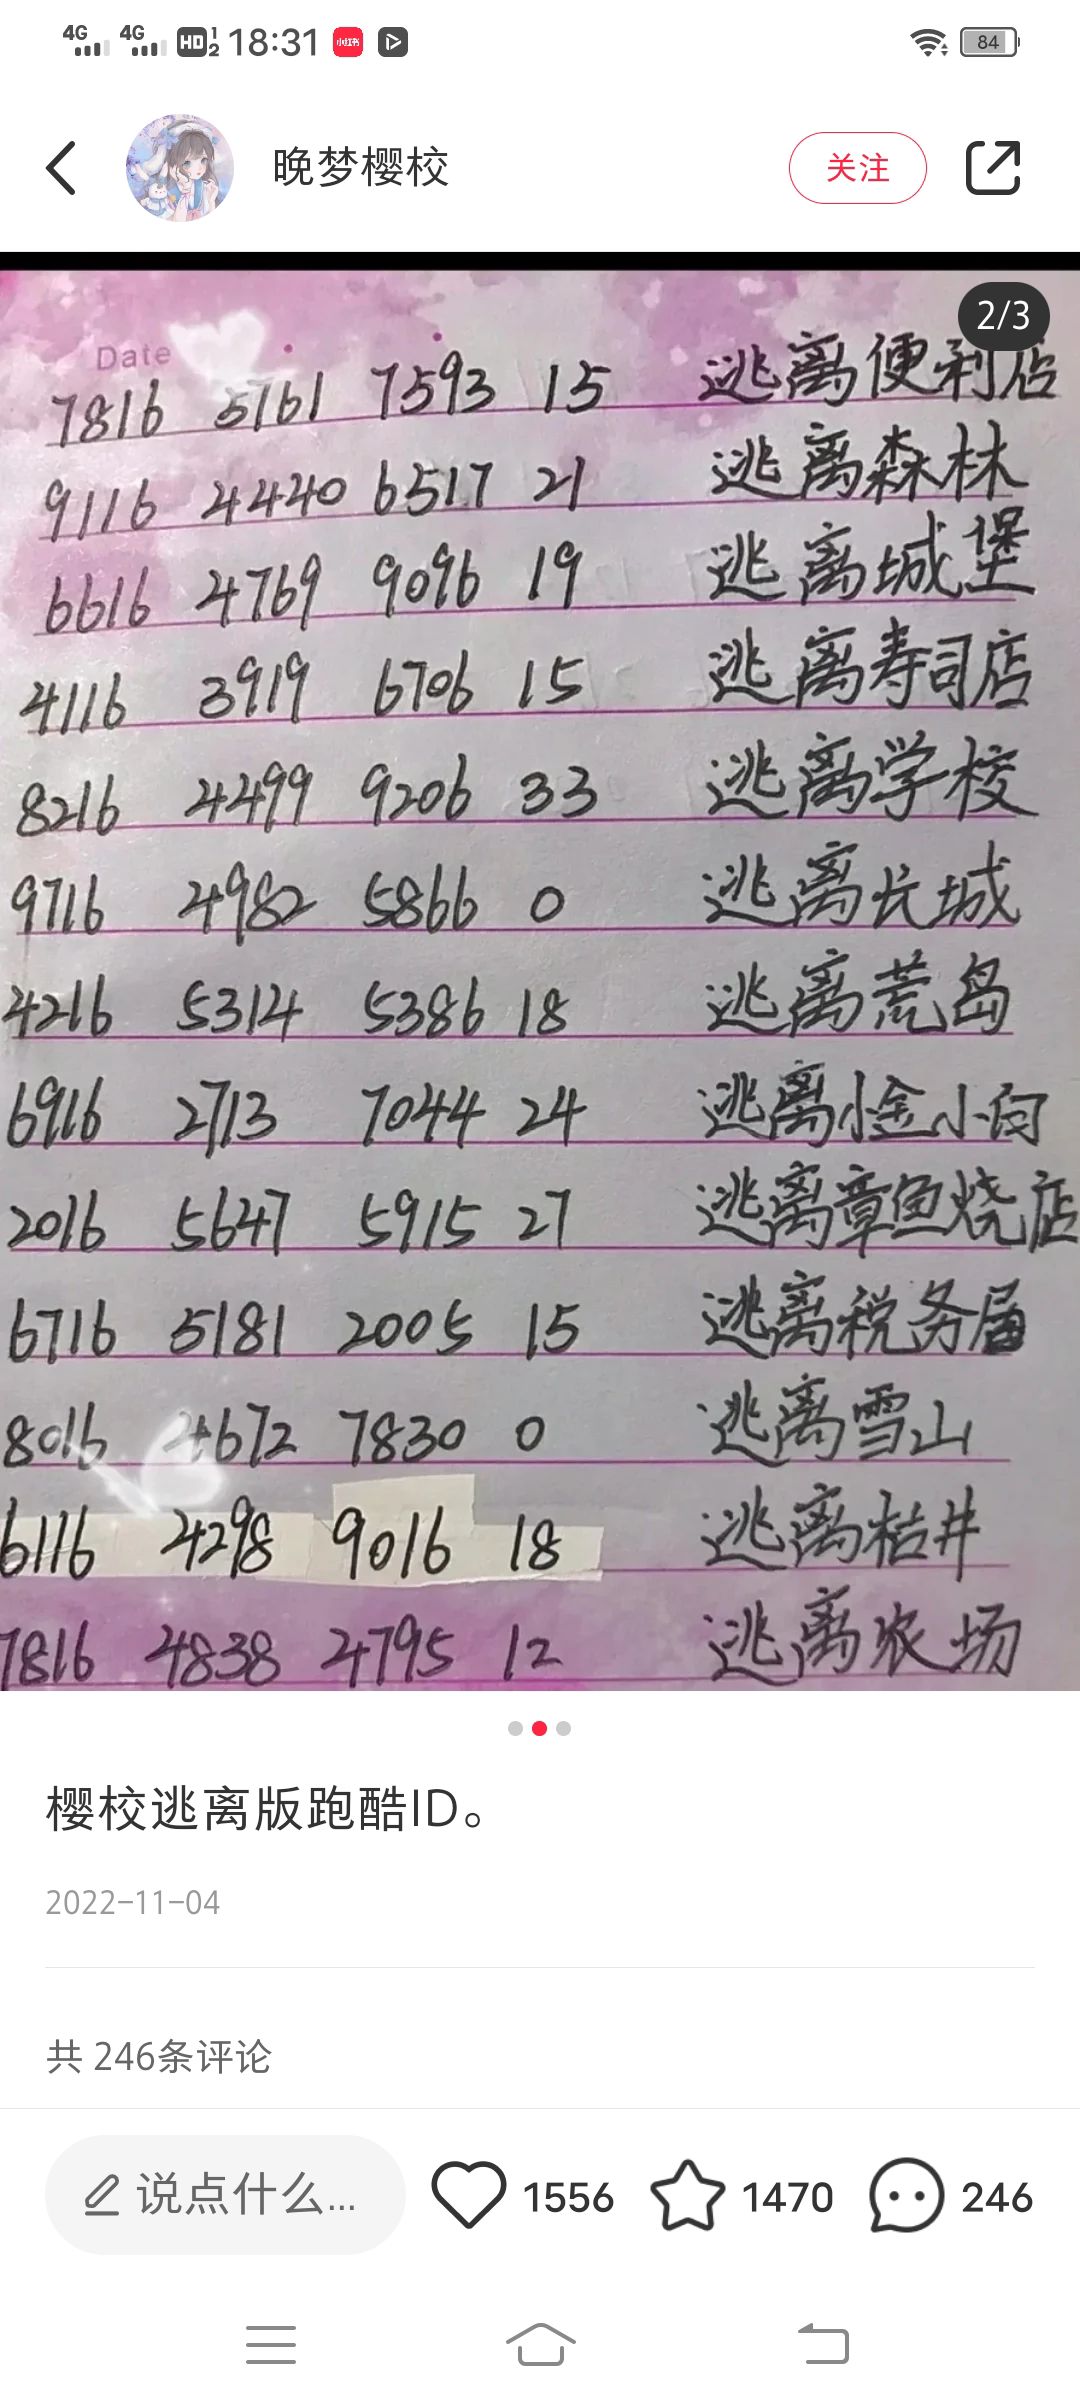 4G 4G HD 1 2 18:31 小红书 84
晚梦樱校 关注
2/3
Date
7816 5761 7593 15 逃离便利店
9116 4440 6517 21 逃离森林
6616 4769 9096 19 逃离城堡
4116 3919 6706 15 逃离寿司店
8216 4499 9206 33 逃离学校
9716 4982 5866 0 逃离长城
4216 5314 5386 18 逃离荒岛
6916 2713 7044 24 逃离小金小向
2016 5647 5915 27 逃离章鱼烧店
6716 5181 2005 15 逃离税务届
8016 4672 7830 0 逃离雪山
6116 4298 9016 18 逃离枯井
7816 4838 4795 12 逃离农场
樱校逃离版跑酷ID。
2022-11-04
共 246条评论
说点什么... 1556 1470 246